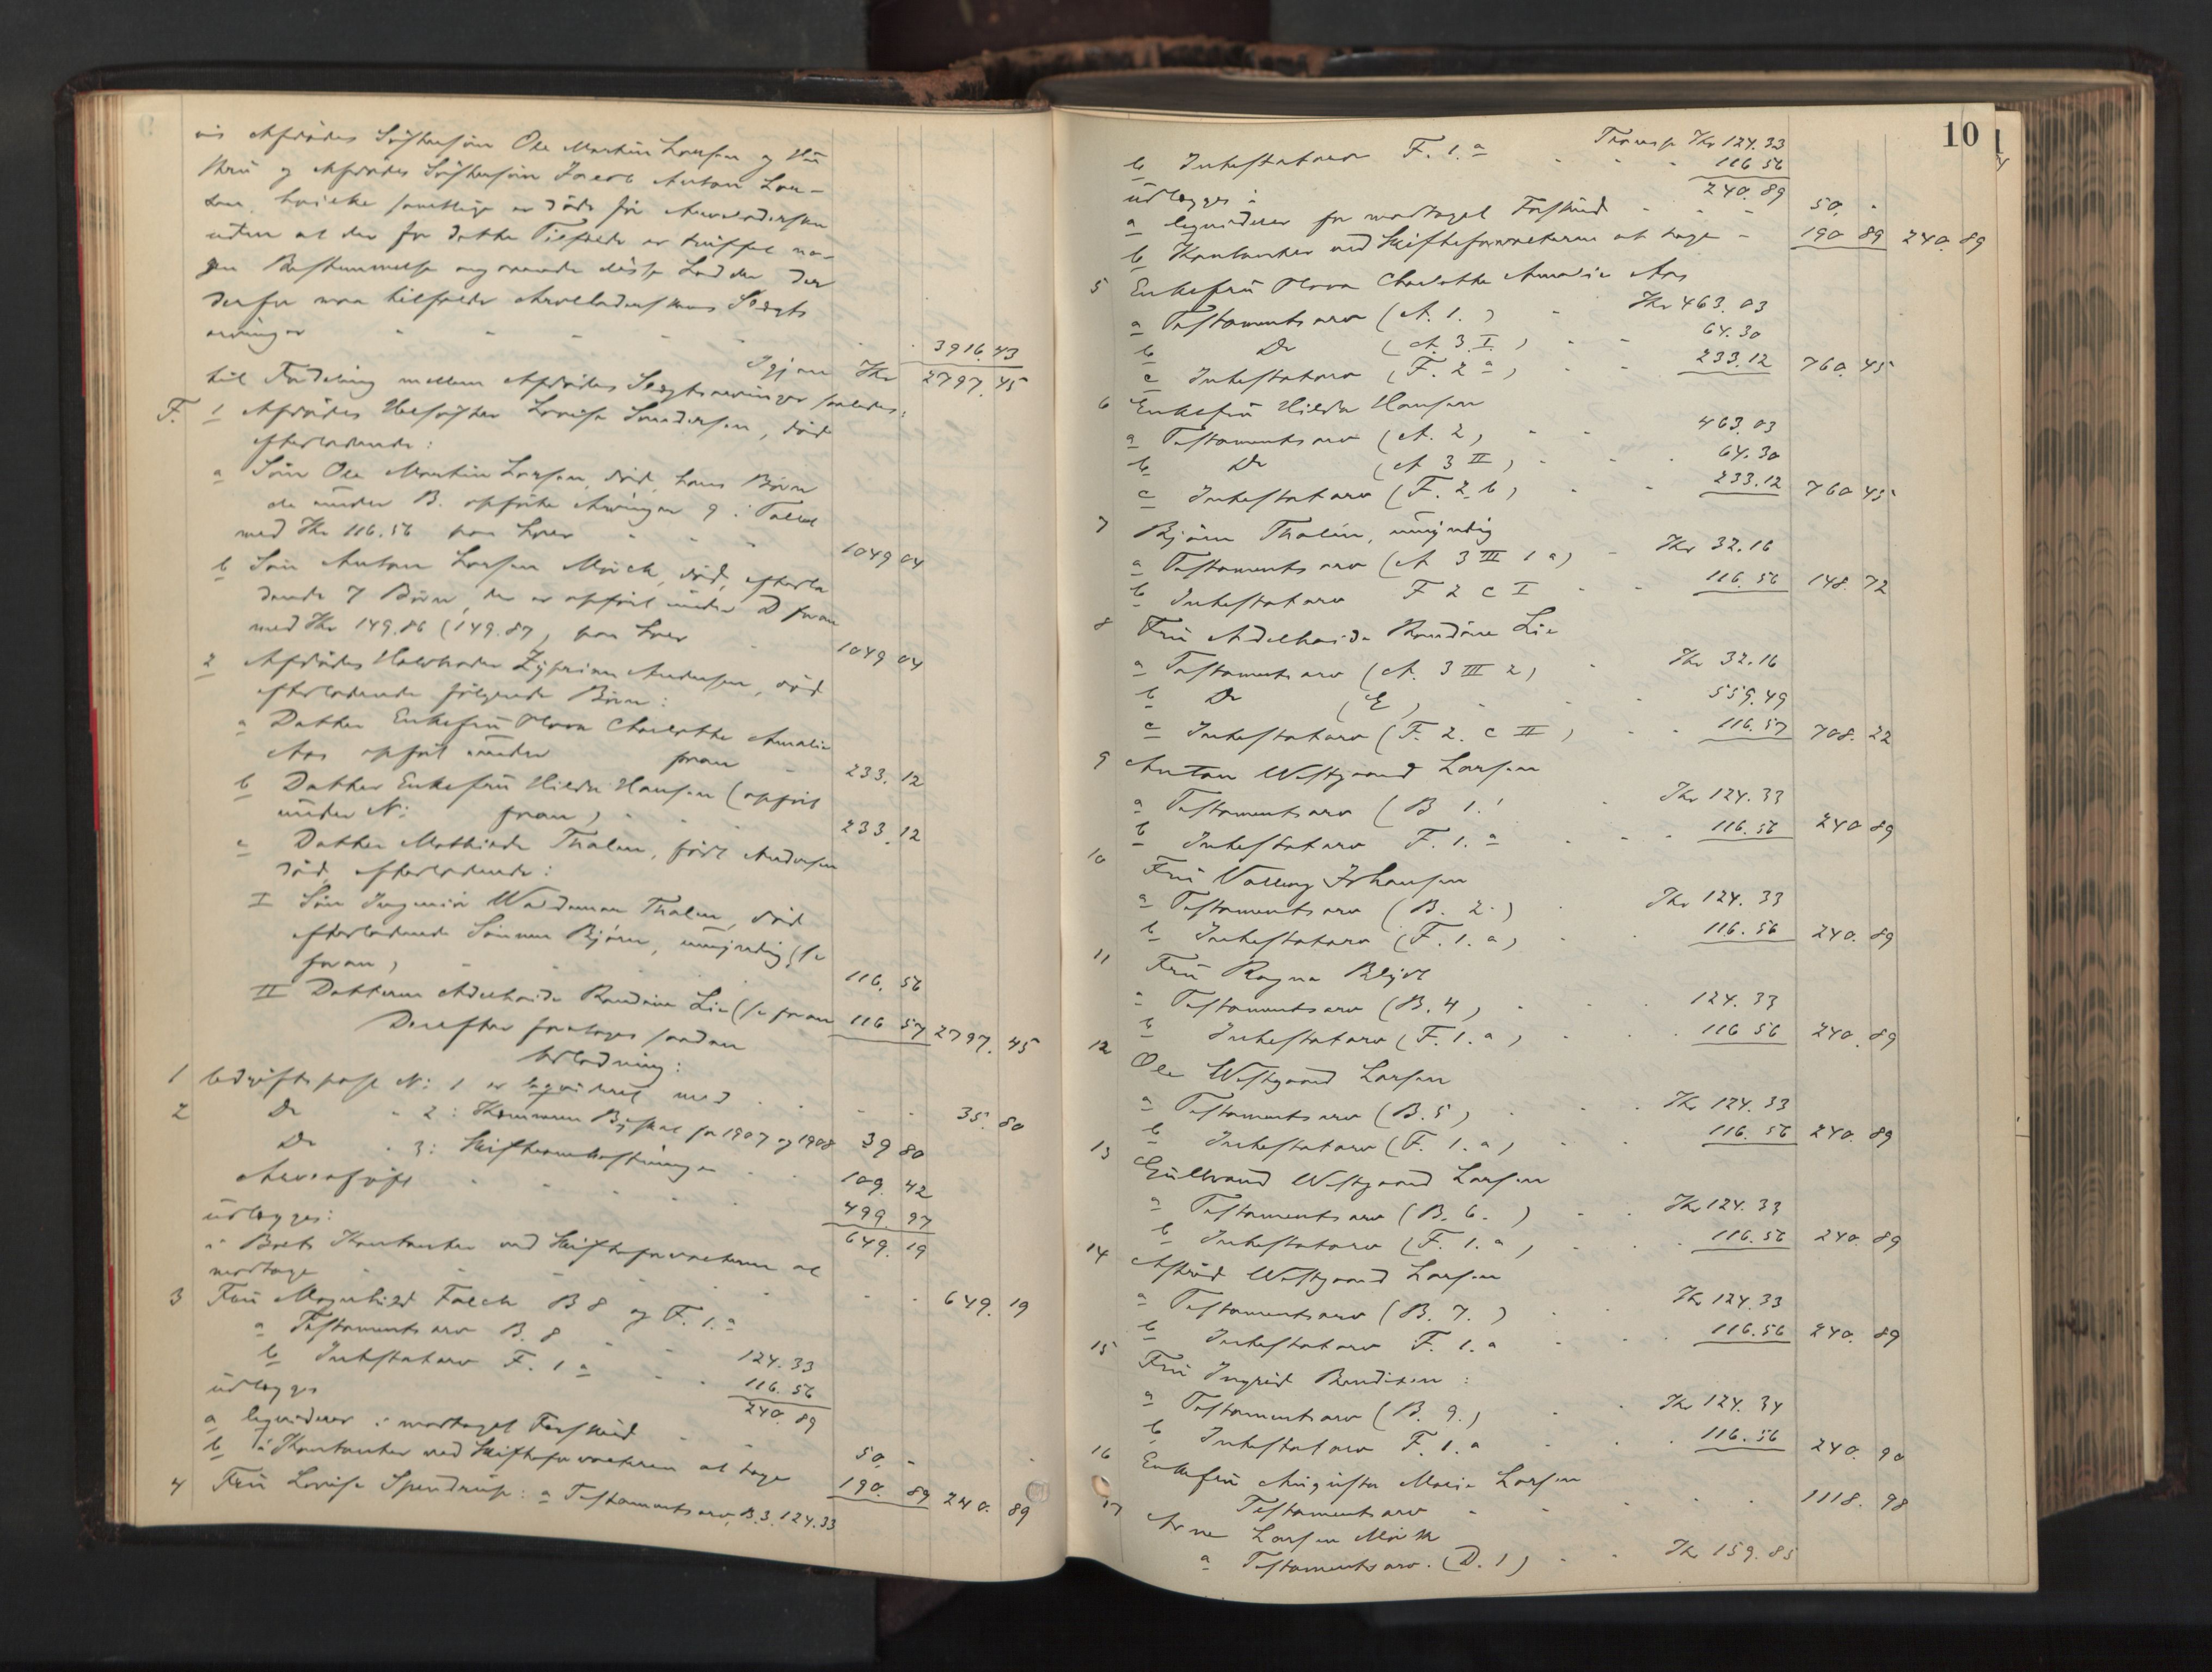 Afdødes Søstersøn Ole Martin Larsen og
og Afdødes Søstersøn Jacob Anton Lar-
sen, hvilke samtlige er døde før Arveladersken
uden at der for dette Tilfælde er truffet no-
gen Bestemmelse angaaende disse Lodder, der
derfor maa tilfalde Arveladerskens Slægts
arvinger 3916.43
Igjen Kr 2797.45
til Fordeling mellem Afdødes Slægtsarvinger saaledes:
F. 1 Afdødes Halvsøster Lovise Andersen, død
efterladende:
a Søn Ole Martin Larsen, død, hans Børn
de under B. opførte Arvinger 9 i Tallet
med Kr 116.56 paa hver 1049 04
b Søn Anton Larsen Mörck, død, efterla
dende 7 Børn, der er opført under D foran
med Kr 149.86 (149.87) paa hver 1049 04
2 Afdødes Halvbroder Zyprian Andersen, død
efterladende følgende Børn:
a Datter Enkefru Nora Charlotte Amalie
Aas opført under foran 233.12
b Datter Enkefru Hilda Hansen (opført
under N: foran) 233.12
c Datter Mathilde Thalin, født Andersen
død, efterladende:
I Søn Ingeniør Waldemar Thalin, død
efterladende Sønnen Bjørn, umyndig (se
foran) 116.56
II Datteren Adelhaide Randine Lie (se foran 116 57 2797.45
Derefter foretages saadan
Udlodning:
1 Bedrift post N: 1 er liqvideret med 35.80
2 Do " 2: Kommune Byskat for 1907 og 1908 39 80
Do " 3: Skifteomkostninger 109.42
Arveafgift 499.97
udlægges: 649.19
i Boets Kontanter ved Skifteforvalteren at
modtage 649.19
3 Fru Magnhild Falck B 8 og F. 1.a
a Testamentsarv B. 8 124.33
b Intestatarv F. 1 a 116.56
udlægges 240.89
a liqviderer i modtaget Forskud 50.-
b i Kontanter ved Skifteforvalteren at tage 190.89 240.89
4 Fru Lovise Spendrup: a Testamentsarv, B.3. 124.33
10
Transp Kr 124.33
b Intestatarv F. 1.a 116 56
udlægges: 240.89
a liqviderer for modtaget Forskud 50.-
b Kontanter ved Skifteforvalteren at tage - 190 89 240.89
5 Enkefru Nora Charlotte Amalie Aas
a Testamentsarv (A. 1.) Kr 463.03
b Do (A. 3. I.) 64.30
c Intestatarv (F. 2 a) 233.12 760.45
6 Enkefru Hilda Hansen
a Testamentsarv (A. 2) 463.03
b Do (A 3 II) 64.30
c Intestatarv (F. 2 b) 233.12 760 45
7 Bjørn Thalin, umyndig
a Testamentsarv (A 3 III 1 a) Kr 32.16
b Intestatarv F 2 c I 116.56 148.72
8 Fru Adelhaide Randine Lie
a Testamentsarv (A. 3 III 2) Kr 32.16
b Do (E) 559.49
c Intestatarv (F. 2. c II) 116.57 708.22
9 Anton Westgaard Larsen
a Testamentsarv (B 1.) Kr 124.33
b Intestatarv F. 1. a 116.56 240 89
10 Fru Valborg Johansen
a Testamentsarv (B. 2.) Kr 124.33
b Intestatarv (F. 1. a) 116.56 240.89
11 Fru Ragna
a Testamentsarv (B. 4) 124.33
b Intestatarv (F. 1. a) 116 56 240.89
12 Ole Westgaard Larsen
a Testamentsarv (B. 5) Kr 124.33
b Intestatarv (F. 1. a) 116.56 240.89
13 Gullbrand Westgaard Larsen
a Testamentsarv (B. 6.) Kr 124.33
b Intestatarv (F. 1. a) 116.56 240.89
14 Astrid Westgaard Larsen
a Testamentsarv (B. 7.) Kr 124.33
b Intestatarv F. 1. a 116.56 240.89
15 Fru Ingrid Bendixen:
a Testamentsarv (B. 9.) Kr 124.34
b Intestatarv F. 1. a 116.56 240.90
16 Enkefru Augusta Marie Larsen
Testamentsarv 1118.98
17 Arne Larsen Mörk
a Testamentsarv. (D. 1) Kr 159.85